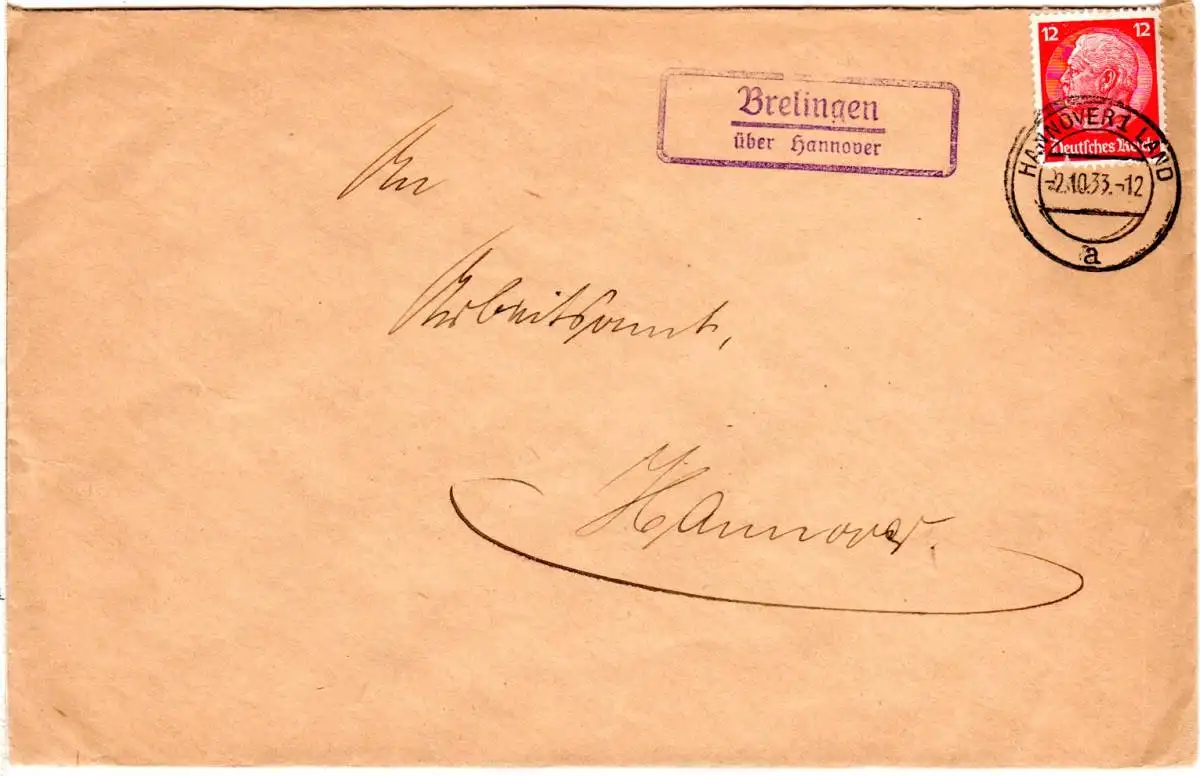 12 12
Deutsches Reich
HANNOVER 1 LAND
-2.10.33.-12
a
Brelingen
über Hannover
An
Arbeitsamt,
Hannover.